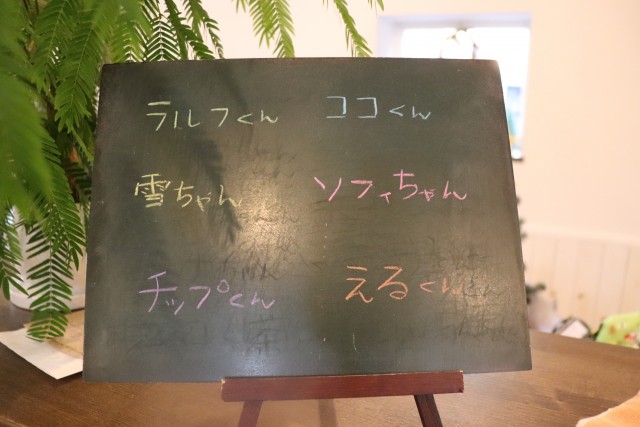 ラルフくん ココくん
雪ちゃん ソフィちゃん
チップくん えるくん